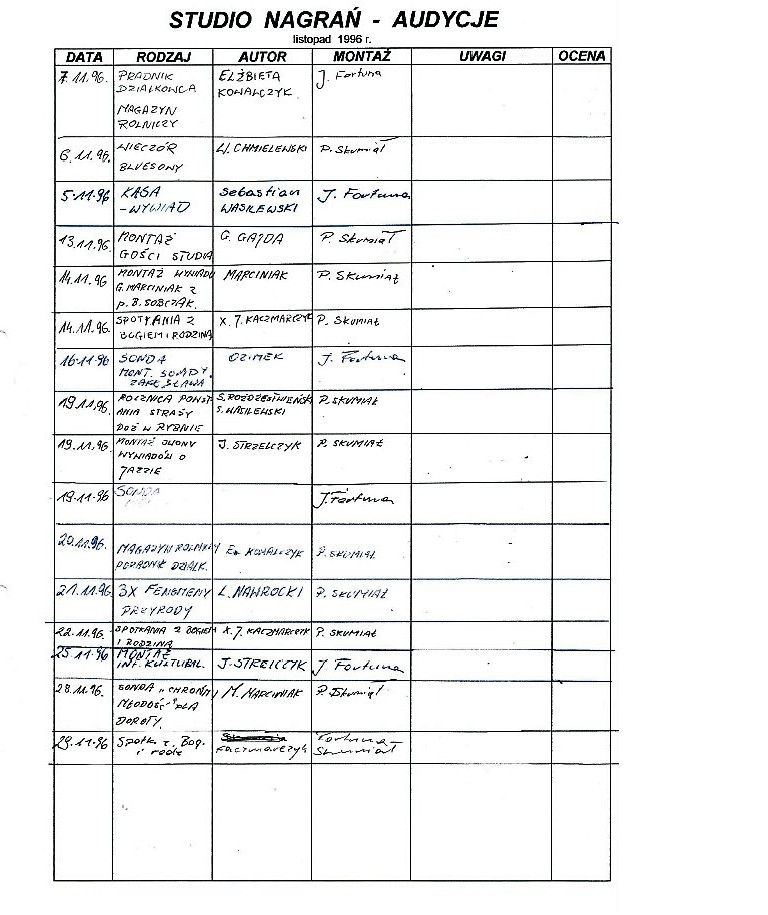 STUDIO NAGRAŃ - AUDYCJE
listopad 1996 r.
DATA RODZAJ AUTOR MONTAŻ UWAGI OCENA
7.11.96. PRADNIK ELŻBIETA J. Fortuna
DZIAŁKOWCA KOWALCZYK
MAGAZYN
ROLNICZY
6.11.96. WIECZÓR W. CHMIELEWSKI P. Skumiał
BLUESOWY
5.11.96 KASA Sebastian J. Fortuna
- WYWIAD WASILEWSKI
13.11.96. MONTAŻ G. GAJDA P. Skumiał
GOŚCI STUDIA
14.11.96 MONTAŻ WYWIADU MARCINIAK P. SKUMIAŁ
G. MARCINIAK Z
P. B. SOBCZAK.
14.11.96. SPOTKANIA Z X. J. KACZMARCZYK P. SKUMIAŁ
BOGIEM I RODZINĄ
16.11.96 SONDA OZIMEK J. Fortuna
MONT. SONDY
19.11.96. ROCZNICA POWST S. ROŻDŻESTWIEŃSKI P. SKUMIAŁ
ANIA STRAŻY S. WASILEWSKI
POŻ W RYBNIE
19.11.96. MONTAŻ J. STRZELCZYK P. SKUMIAŁ
WYWIADÓW O
JAZZIE
19.11.96 SONDA J. Fortuna
20.11.96. MAGAZYN ROLNICZY E. KOWALCZYK P. SKUMIAŁ
PORADNIK DZIAŁK.
21.11.96 3X FENOMENY L. NAWROCKI P. SKUMIAŁ
PRZYRODY
22.11.96. SPOTKANIA Z BOGIEM X. J. KACZMARCZYK P. SKUMIAŁ
I RODZINĄ
25.11.96 MONTAŻ J. STRELCZYK J Fortuna
INF. KULTURAL.
28.11.96. SONDA „CHROŃMY M. MARCINIAK P. Skumiał
MŁODOŚĆ" DLA
DOROTY.
29.11.96 Spotk z Bog. Kaczmarczyk Fortuna
i rodz Skumiał